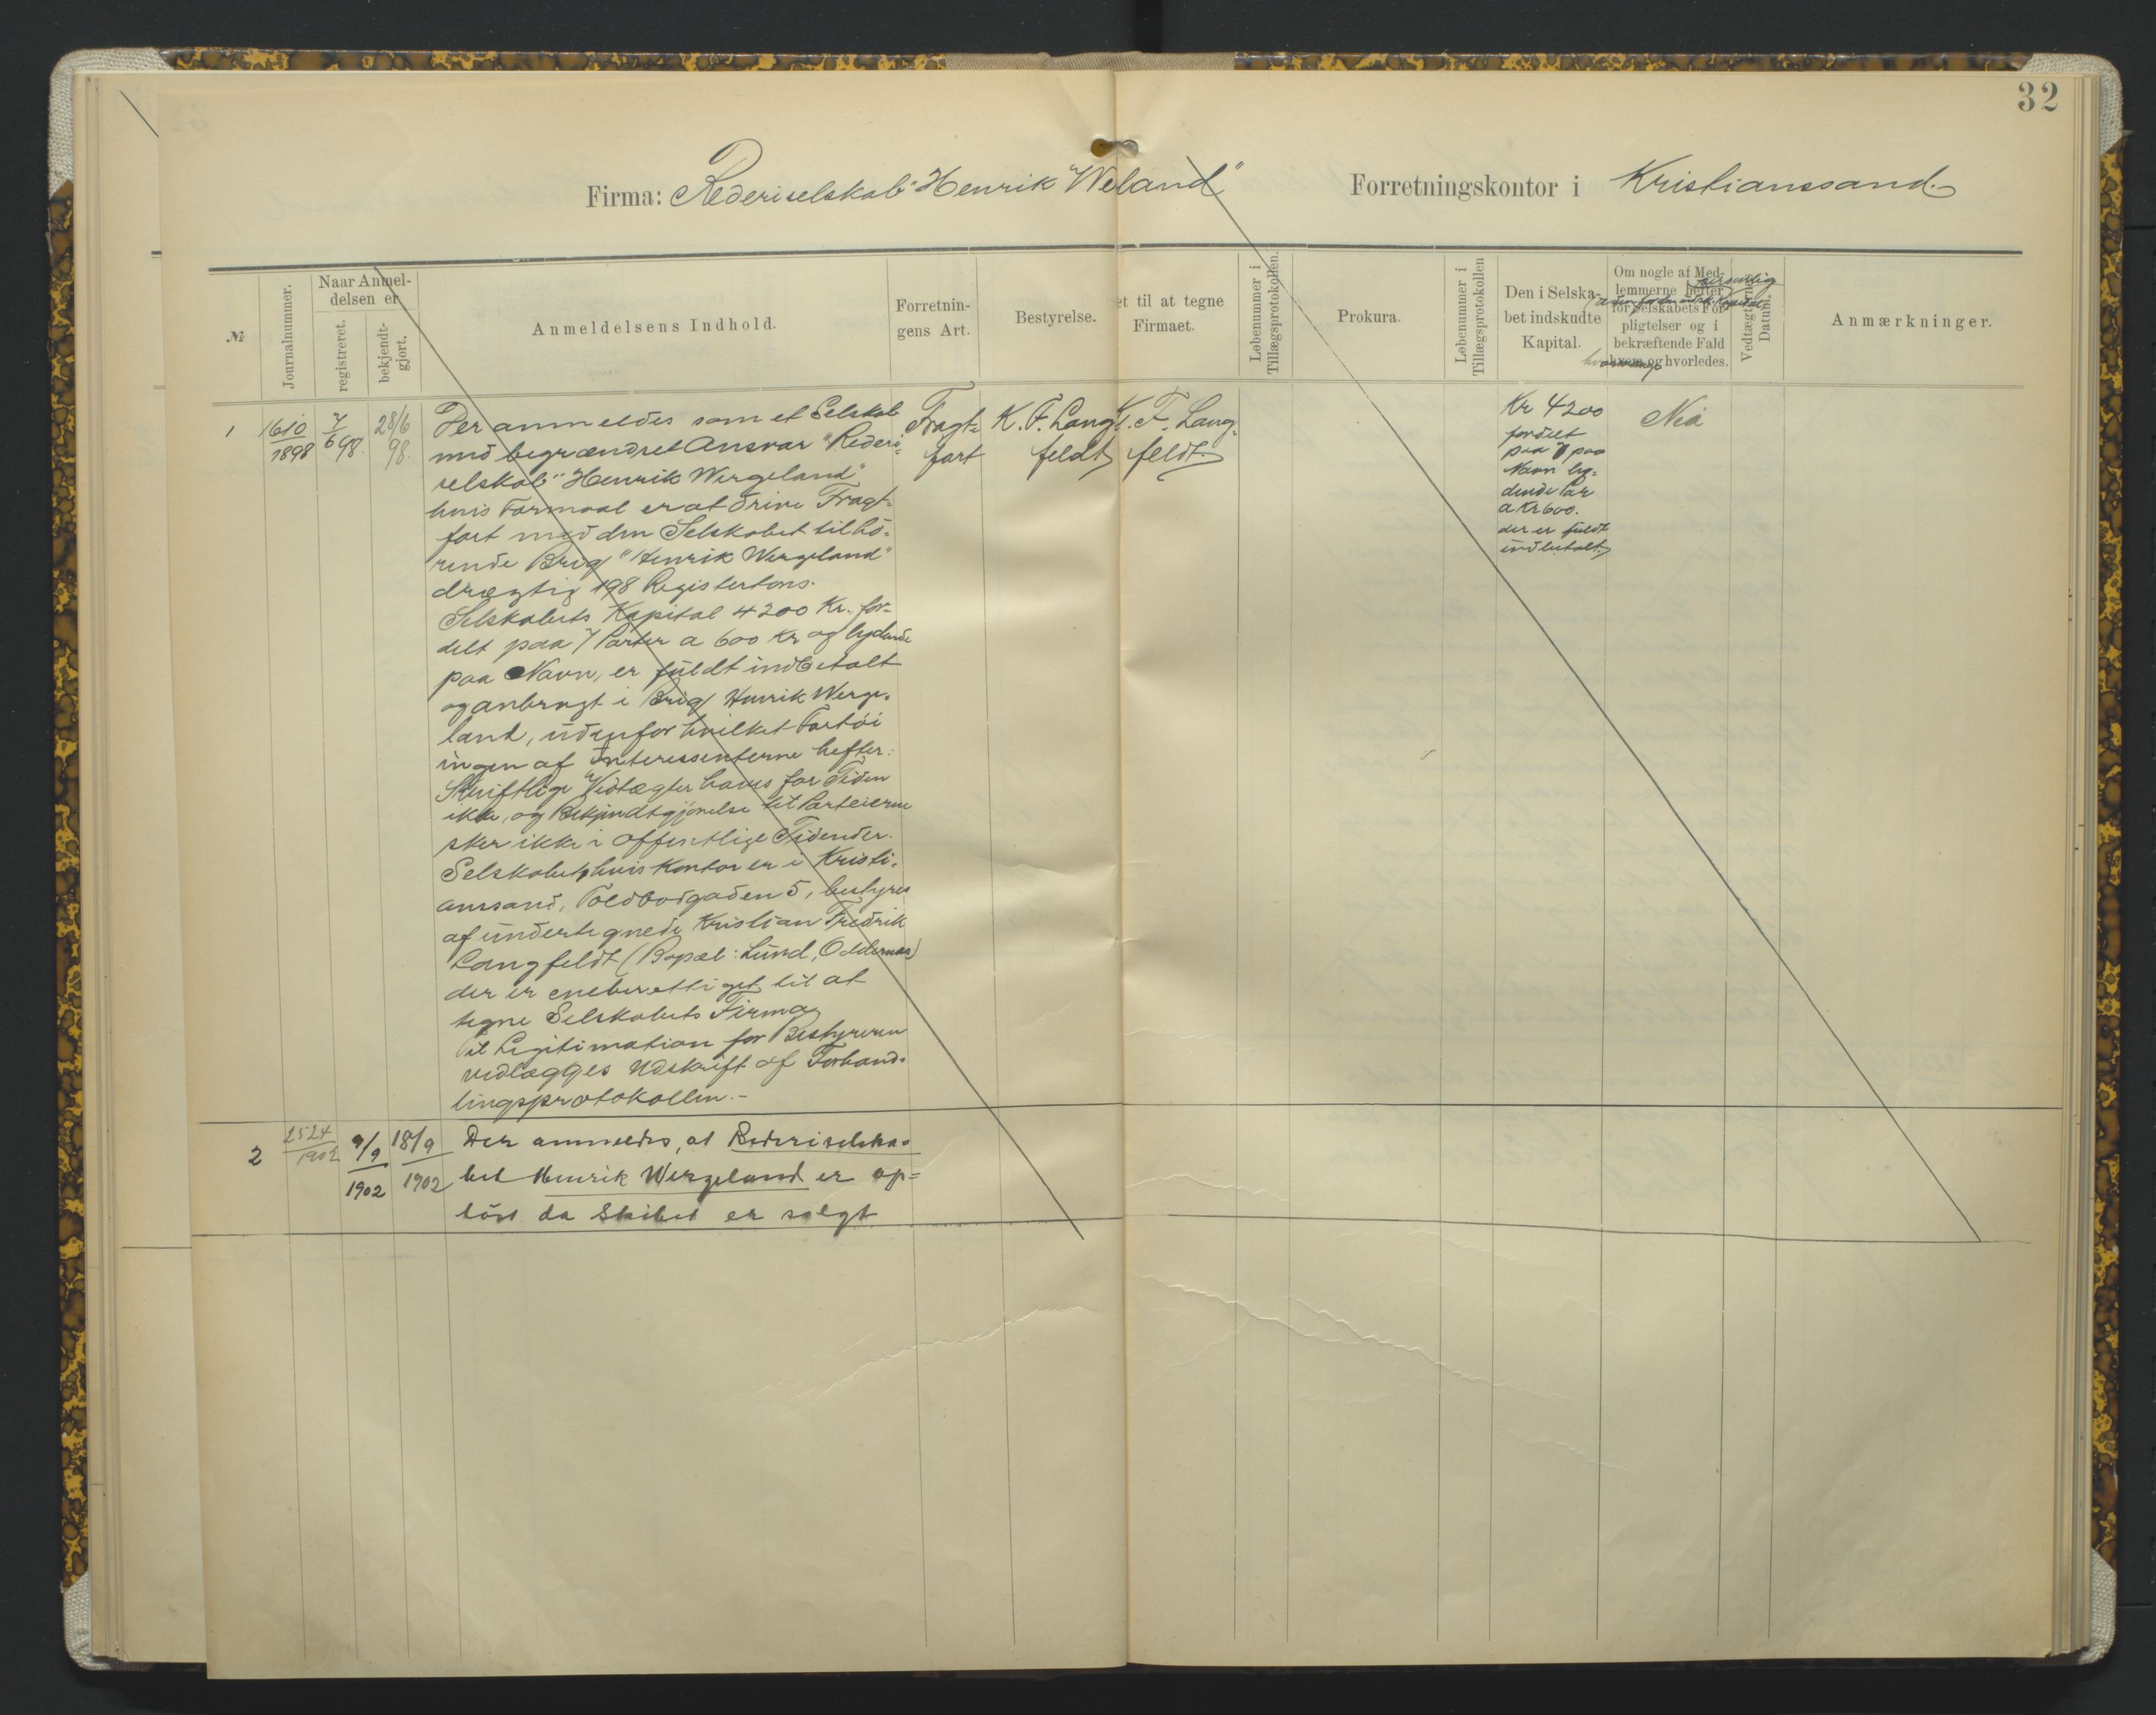 32
Firma: Rederiselskab "Henrik "Weland"
Forretningskontor i Kristianssand.
№
Journalnummer.
Naar Anmel-
delsen er
registreret.
bekjendt-
gjort.
Anmeldelsens Indhold.
Forretnin-
gens Art.
Bestyrelse.
et til at tegne
Firmaet.
Løbenummer i
Tillægsprotokollen.
Prokura.
Løbenummer i
Tillægsprotokollen
Den i Selska-
bet indskudte
Kapital.
Om nogle af Med-
lemmerne hefter personlig
for Selskabets For-
pligtelser og i
bekræftende Fald
hvem og hvorledes.
Vedtægternes
Datum.
Anmærkninger.
1
1610
1898
7/6 98.
28/6
98.
Der anmeldes som et Selskab
med begrændset Ansvar "Rederi-
selskab "Henrik Wergeland"
hvis Formaal er at drive Fragt-
fart med den Selskabet tilhö-
rende Brig "Henrik Wergeland"
drægtig 198 Registertons.
Selskabets Kapital 4200 Kr. for-
delt paa 7 Parter a 600 Kr og lydende
paa Navn, er fuldt indbetalt
og anbragt i Brig Henrik Werge-
land, udenfor hvilket Fartöi
ingen af Interessenterne hefter.
Skriftlige Vedtægter haves for Tiden
ikke, og Bekjendtgjörelse til Parteierne
sker ikke i offentlige Tidender.
Selskabet, hvis Kontor er i Kristi-
anssand, Toldbodgaden 5, bestyres
af undertegnede Kristian Fredrik
Langfeldt (Bopæl: Lund, Oddernæs)
der er eneberettiget til at
tegne Selskabets Firma
Til Legitimation for Bestyreren
vedlægges Udskrift af Forhand-
lingsprotokollen.-
Fragt-
fart
K. F. Lang
feldt
K. F. Lang-
feldt.
Kr 4200
fordelt
paa 7 paa
Navn ly-
dende Par
a Kr 600.
der er fuldt
indbetalt.
Nei
2
2524
1902
9/9
1902
18/9
1902
Der anmeldes, at Rederiselska-
bet Henrik Wergeland er op-
löst da Skibet er solgt